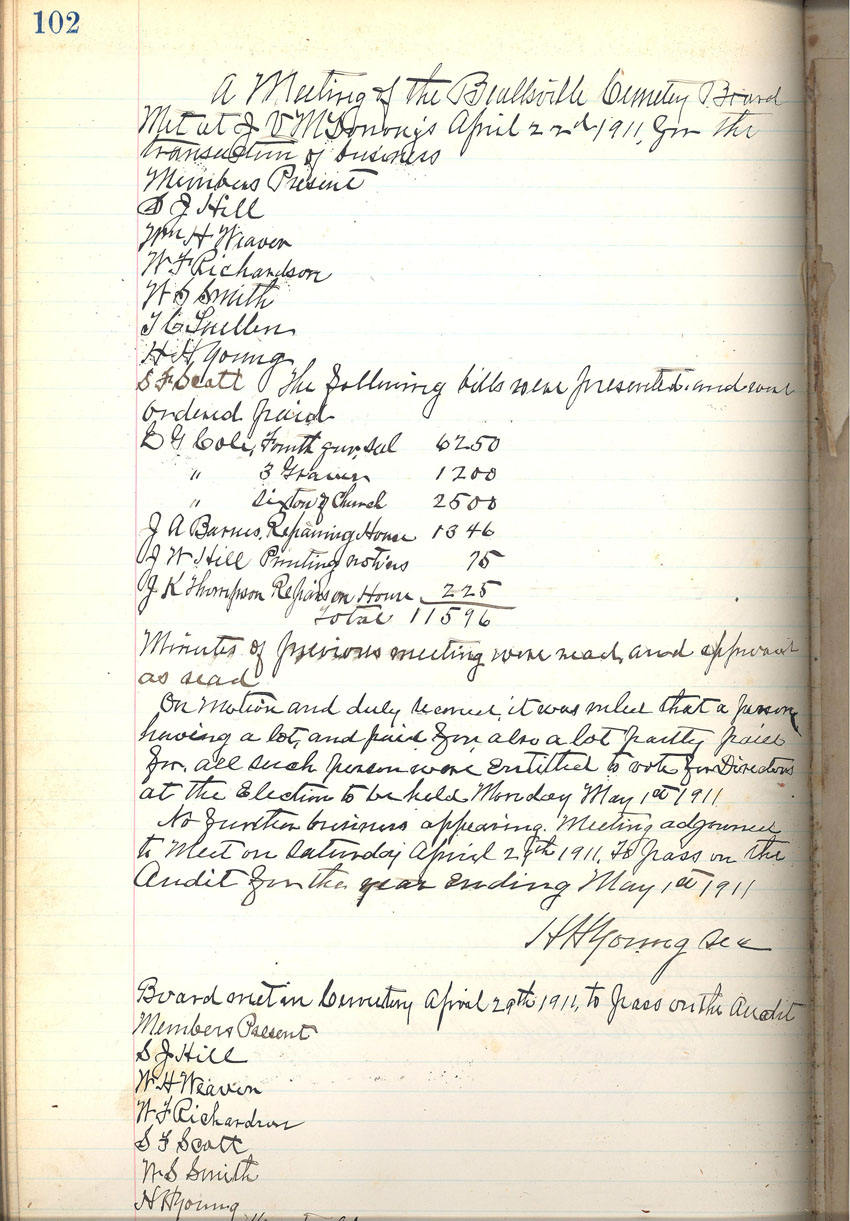 102
A Meeting of the Beallsville Cemetery Board
Met at J V McDonough's April 22nd 1911, for the
transaction of business
Members Present
S J Hill
Wm H Weaver
W F Richardson
W S Smith
T C Luellen
H H Young
S F Scott The following bills were presented and were
ordered paid
E G Cole, Fourth qur, Sal 6250
" 3 Graves 1200
" Sixton of Church 2500
J A Barnes, Repairing House 1346
J W Hill Printing notices 75
J K Thompson Repairs on House 225
Total 11596
Minutes of previous meeting were read, and approved
as read
On Motion and duly second, it was ruled that a person
having a lot, and paid for also a lot partly paid
for, all such person were entitled to vote for Directors
at the Election to be held Monday May 1st 1911
No further business appearing. Meeting adjourned
to Meet on Saturday April 29th 1911, to pass on the
Audit for the year ending May 1st 1911
H H Young Sec
Board met in Cemetery April 29th 1911, to pass on the Audit
Members Present
S J Hill
W H Weaver
W F Richardson
S F Scott
W S Smith
H H Young